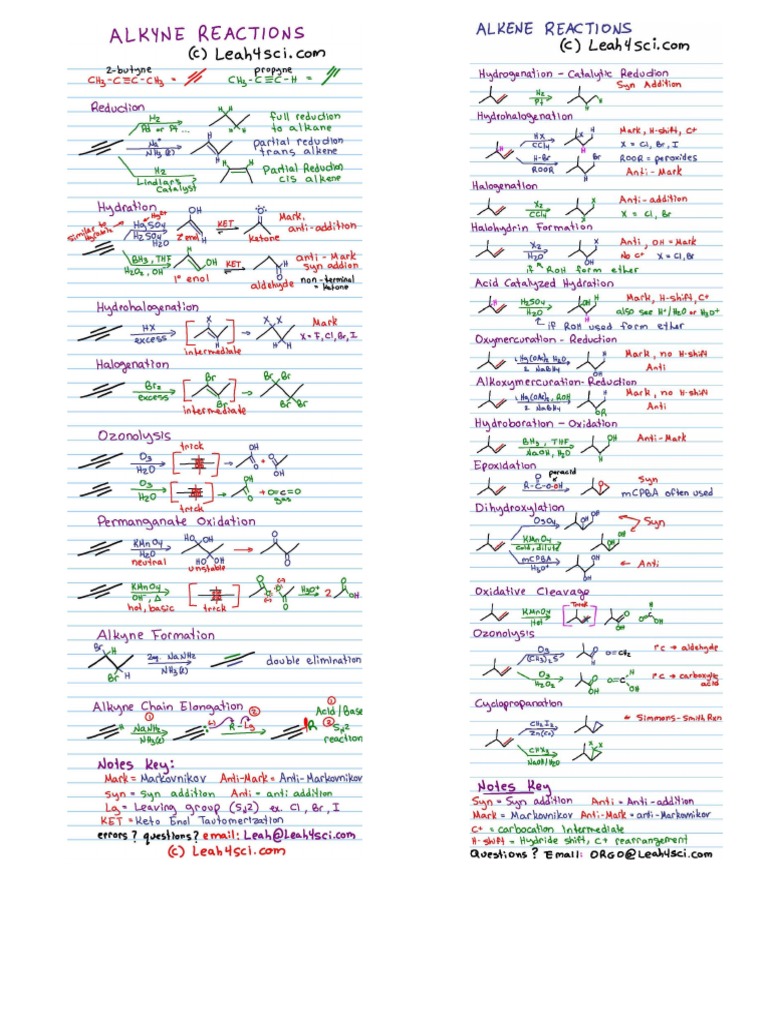 ALKYNE REACTIONS
(c) Leah4sci.com
2-butyne propyne
CH3-C≡C-CH3 = CH3-C≡C-H =
Reduction
H2
Pd or Pt...
H H
full reduction
to alkane
Na°
NH3(l)
H
H
partial reduction
trans alkene
H2
Lindlar's
Catalyst
H H
Partial Reduction
cis alkene
Hydration
similar to
Hg2+
HgSO4
H2SO4
H2O
OH
H
2°enol
KET
O
H
Ketone
Mark.
anti-addition
BH3, THF
H2O2, OH-
H
OH
1° enol
KET
H
O
aldehyde
anti-Mark
syn addion
non-terminal
= ketone
Hydrohalogenation
HX
excess
X
H
intermediate
X X
H H
Mark
X = F, Cl, Br, I
Halogenation
Br2
excess
Br
Br
intermediate
Br Br
Br Br
Ozonolysis
trick
O3
H2O
OH
O
+
O
OH
O3
H2O
trick
OH
O
+ O=C=O
gas
Permanganate Oxidation
KMnO4
H2O
neutral
HO OH
HO OH
unstable
O
O
KMnO4
OH-, Δ
hot, basic
trick
O
O(-)
(-)O
O
H3O+
2
O
OH
Alkyne Formation
Br
H
Br
H
2eq. NaNH2
NH3(l)
double elimination
Alkyne Chain Elongation
①
H
NaNH2
NH3(l)
(-)
②
R-Lg
R
①
Acid/Base
②
SN2
reaction
Notes Key:
Mark = Markovnikov Anti-Mark = Anti-Markovnikov
Syn = syn addition Anti = anti addition
Lg = Leaving group (SN2) ex. Cl, Br, I
KET = Keto Enol Tautomerization
errors? questions? email: Leah@Leah4sci.com
(c) Leah4sci.com
ALKENE REACTIONS
(c) Leah4sci.com
Hydrogenation - Catalytic Reduction
H2
Pt
H
H
Syn Addition
Hydrohalogenation
H
HX
CCl4
X
H
Mark, H-shift, C+
X = Cl, Br, I
H-Br
ROOR
Br
H
ROOR = peroxides
Anti-Mark
Halogenation
X2
CCl4
X
X
Anti-addition
X = Cl, Br
Halohydrin Formation
X2
H2O
X
OH
Anti, OH = Mark
No C+ X = Cl, Br
if ROH form ether
Acid Catalyzed Hydration
H
H2SO4
H2O
OH
H
Mark, H-shift, C+
also see H+/H2O or H3O+
if ROH used form ether
Oxymercuration - Reduction
1. Hg(OAc)2 H2O
2. NaBH4
H
OH
Mark, no H-shift
Anti
Alkoxymercuration-Reduction
1. Hg(OAc)2, ROH
2. NaBH4
H
OR
Mark, no H-shift
Anti
Hydroboration - Oxidation
BH3, THF
NaOH, H2O2
OH
H
Anti-Mark
Epoxidation
O
R-C-O-OH
paracid
O
Syn
mCPBA often used
Dihydroxylation
OsO4
OH
OH
KMnO4
cold, dilute
OH
OH
Syn
mCPBA
H3O+
OH
OH
Anti
Oxidative Cleavage
KMnO4
Hot
Trick
O
OH
H
O
OH
Ozonolysis
O3
(CH3)2S
H
O
O=CH2
1°C → aldehyde
O3
H2O2
OH
O
O=C
H
OH
1°C → carboxylic
acid
Cyclopropanation
CH2I2
Zn(Cu)
Simmons-Smith Rxn
CHX3
NaOH/H2O
X X
Notes Key
Syn = Syn addition Anti = Anti-addition
Mark = Markovnikov Anti-Mark = anti-Markovnikov
C+ = carbocation Intermediate
H-shift = Hydride shift, C+ rearrangement
Questions? Email: ORGO@Leah4sci.com